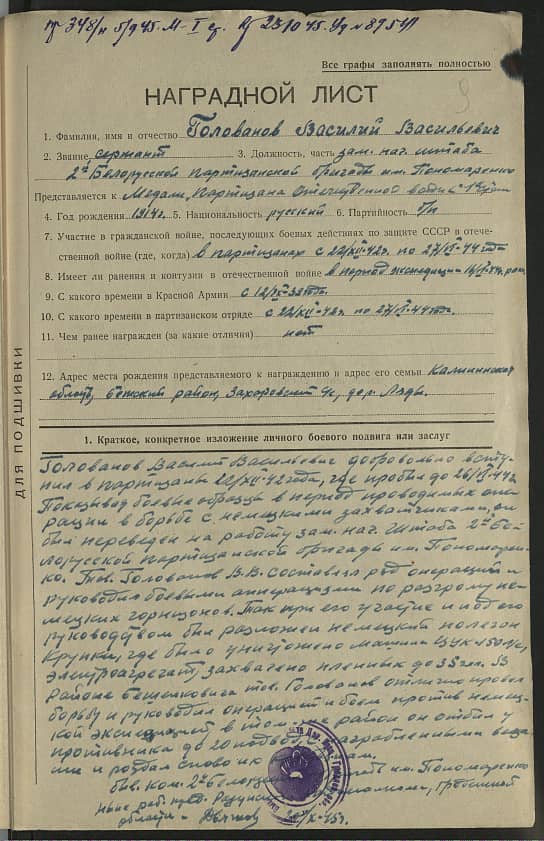 пр 348/н 5/IX 45. М-I ст.
Все графы заполнять полностью
НАГРАДНОЙ ЛИСТ
1. Фамилия, имя и отчество Голованов Василий Васильевич
2. Звание сержант 3. Должность, часть зам. нач. штаба
2й Белорусской партизанской бригады им. Пономаренко
Представляется к Медали „Партизана Отечественной войны" 1й
4. Год рождения 1914г. 5. Национальность русский 6. Партийность б/п
7. Участие в гражданской войне, последующих боевых действиях по защите СССР в отече-
ственной войне (где, когда) в партизанах с 22/XII-42г. по 27/VI-44
8. Имеет ли ранения и контузии в отечественной войне в период экспедиции
9. С какого времени в Красной Армии
10. С какого времени в партизанском отряде с 22/XII-42г. по 27/VI-44
11. Чем ранее награжден (за какие отличия) нет
12. Адрес места рождения представляемого к награждению и адрес его семьи Калининская
район, с/с, дер. Ляды.
ДЛЯ ПОДШИВКИ
1. Краткое, конкретное изложение личного боевого подвига или заслуг
Голованов Василий Васильевич добровольно всту-
пил в партизаны 22/XII-42 года, где пробыл до 26/VI-44г.
Показывал боевые образцы в период проводимых опе-
рации в борьбе с немецкими захватчиками, он
был переведен на работу зам. нач. Штаба 2й Бе-
лорусской Партизанской бригады им. Пономарен-
ко. Тов. Голованов В.В. составлял ряд операций и
руководил боевыми операциями по разгрому не-
мецких горнизонов. Так при его участие и под его
руководством был разложен немецкий
Крупки, где было уничтожено машина
электроагрегат, захвачено пленных до 35 чел. В
Районе Бешенковичи тов. Голованов отлично провел
борьбу и руководил операцией и боем против немец-
кой экспедицией, в том-же район он отбил у
противника до 20 подвод с награбленными веща-
ми и роздал
быв. ком. 2й им. Пономаренко
Гродненской
области